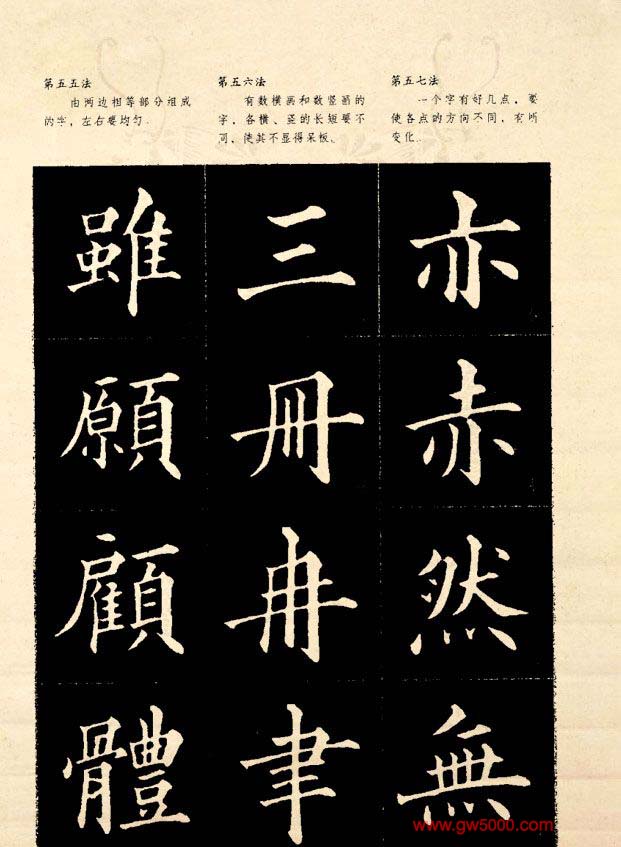 第五五法
由两边相等部分组成
的字，左右要均匀。
第五六法
有数横画和数竖画的
字，各横、竖的长短要不
同，使其不显得呆板。
第五七法
一个字有好几点，要
使各点的方向不同，有所
变化。
雖
願
顧
體
三
冊
冉
聿
亦
赤
然
無
www.gw5000.com